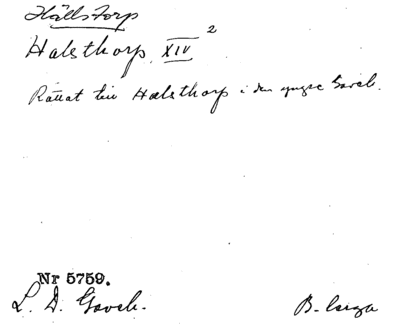 Hällstorp
Halsthorp XIV 2
Rättat till Halsthorp i den yngre
Nr 5759.
L. D.
B.